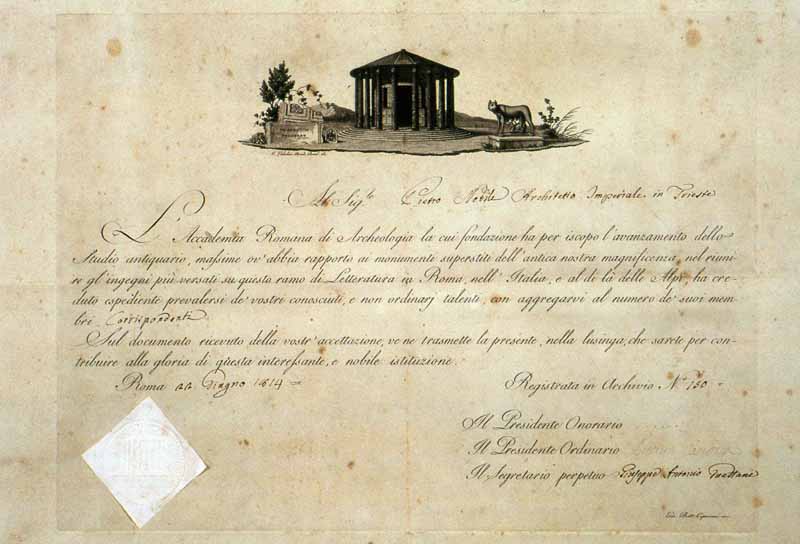 Al Sig.re Pietro Nobile Architetto Imperiale in Trieste
L'Accademia Romana di Archeologia la cui fondazione ha per iscopo l'avanzamento dello
Studio antiquario, massime ov'abbia rapporto ai monumenti superstiti dell'antica nostra magnificenza, nel riuni
re gl'ingegni più versati su questo ramo di Letteratura in Roma, nell'Italia, e al di là delle Alpi, ha cre-
duto espediente prevalersi de' vostri conosciuti, e non ordinarj talenti, con aggregarvi al numero de' suoi mem
bri Corrispondenti.
Sul documento ricevuto della vostr'accettazione, ve ne trasmette la presente, nella lusinga, che sarete per con-
tribuire alla gloria di questa interessante, e nobile istituzione.
Roma 22 Giugno 1814
Registrata in Archivio N.º 150
Il Presidente Onorario
Il Presidente Ordinario
Il Segretario perpetuo Giuseppe Antonio Guattani